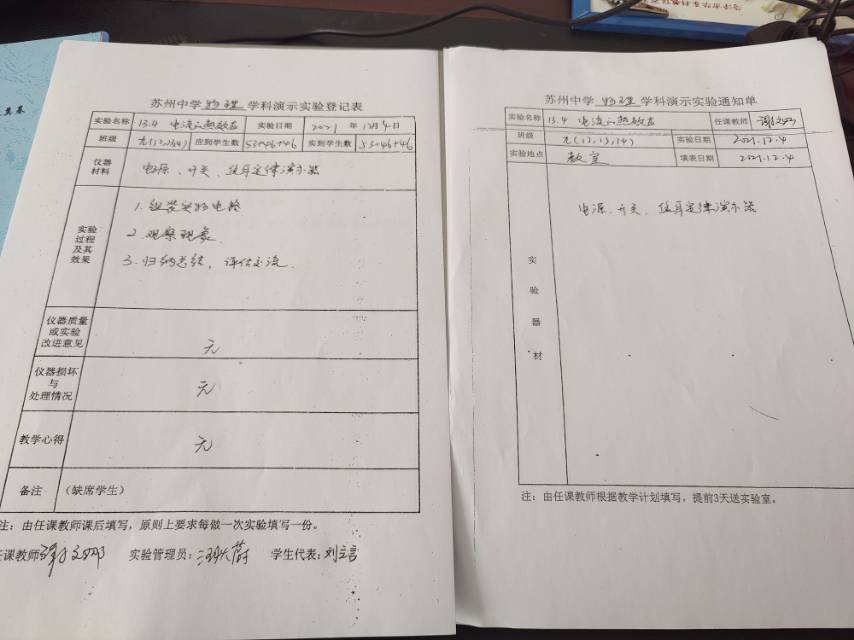 苏州中学 物理 学科演示实验登记表
实验名称 13.4 电流的热效应 实验日期 2021 年 12月4日
班级 (12,13,14) 应到学生数 53+46+46 实到学生数 53+46+46
仪器材料 电源、开关、焦耳定律演示器
实验过程及其效果
1.组装实物电路
2.观察现象
3.归纳总结,评估交流.
仪器质量或实验改进意见 无
仪器损坏与处理情况 无
教学心得 无
备注 (缺席学生)
注:由任课教师课后填写,原则上要求每做一次实验填写一份。
任课教师 实验管理员: 学生代表:刘立言
苏州中学 物理 学科演示实验通知单
实验名称 13.4 电流的热效应 任课教师
班级 (12,13,14) 实验日期 2021.12.4
实验地点 教室 填表日期 2021.12.4
实验器材
电源、开关、焦耳定律演示器
注:由任课教师根据教学计划填写,提前3天送实验室。